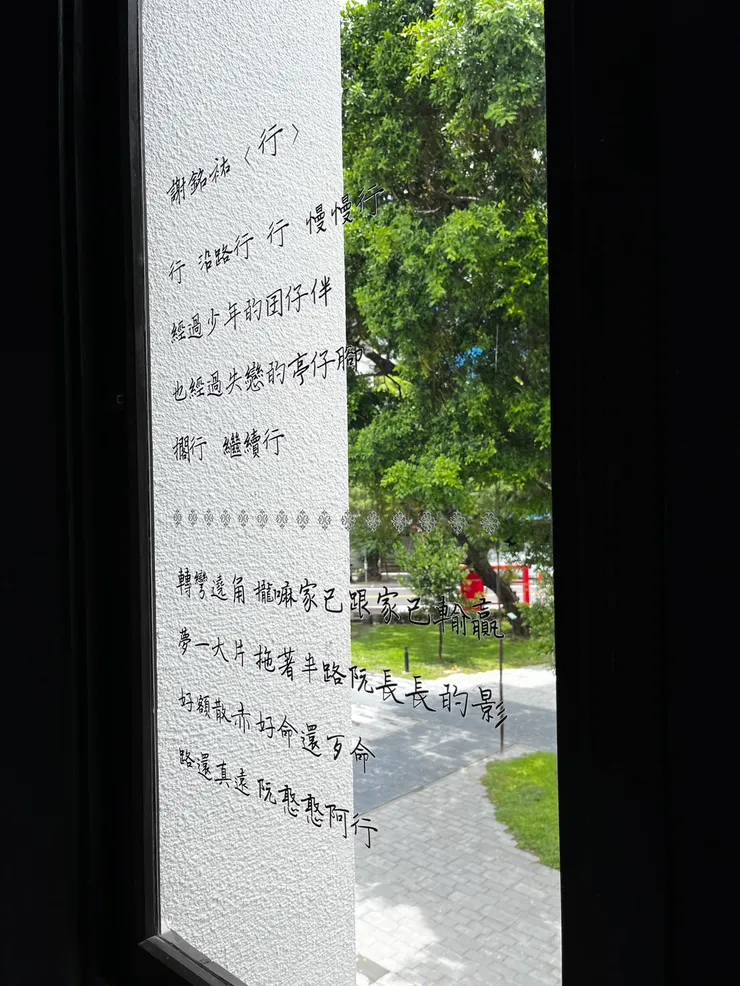 謝銘祐〈行〉
行 沿路行 行 慢慢行
經過少年的囝仔伴
也經過失戀的亭仔腳
擱行 繼續行
轉彎遠角 攏嘛家己跟家己輸贏
夢一大片 拖著半路阮長長的影
好額散赤 好命還歹命
路還真遠 阮憨憨阿行